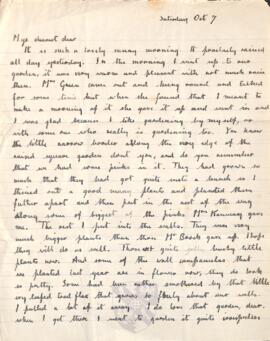 Saturday Oct 7
My dearest dear
It is such a lovely sunny morning. It practically rained
all day yesterday. In the morning I went up to our
garden, it was very warm and pleasant with not much rain
then. Mrs Green came out and hung round and talked
for some time but when she found that I meant to
make a morning of it she gave it up and went in and
I was glad because I like gardening by myself, or
with some one who really is gardening too. You know
the little narrow border along the very edge of the
raised square garden dont you, and do you remember
that we had some pinks in it. They had grown so
much that they had got quite into a bunch so I
thinned out a good many plants and planted them
further apart and then put in the rest of the way
along some of biggest of the pinks Mrs
gave me. The rest I put into the walls. They were very
much bigger plants than those Mr Brock gave up. I hope
they will do as well. Those are quite lusty little
plants now. And some of the wall campanulas that
we planted last year are in flower now, they do look
so pretty. Some had been rather smothered by that little
ivy leafed toad flax that grows so freely about our walls.
I pulled a lot of it away. I do love that garden, dear
when I get there I want to garden it quite